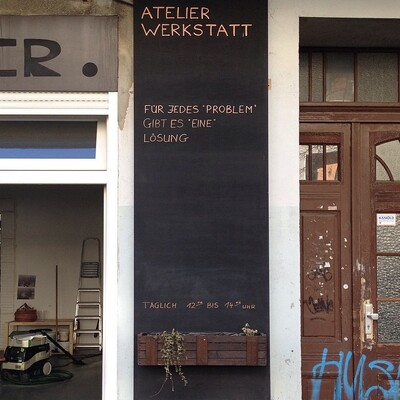 ATELIER
WERKSTATT
ER.
FÜR JEDES "PROBLEM"
GIBT ES "EINE"
LÖSUNG
TÄGLICH 12³⁰ BIS 14³⁰ UHR